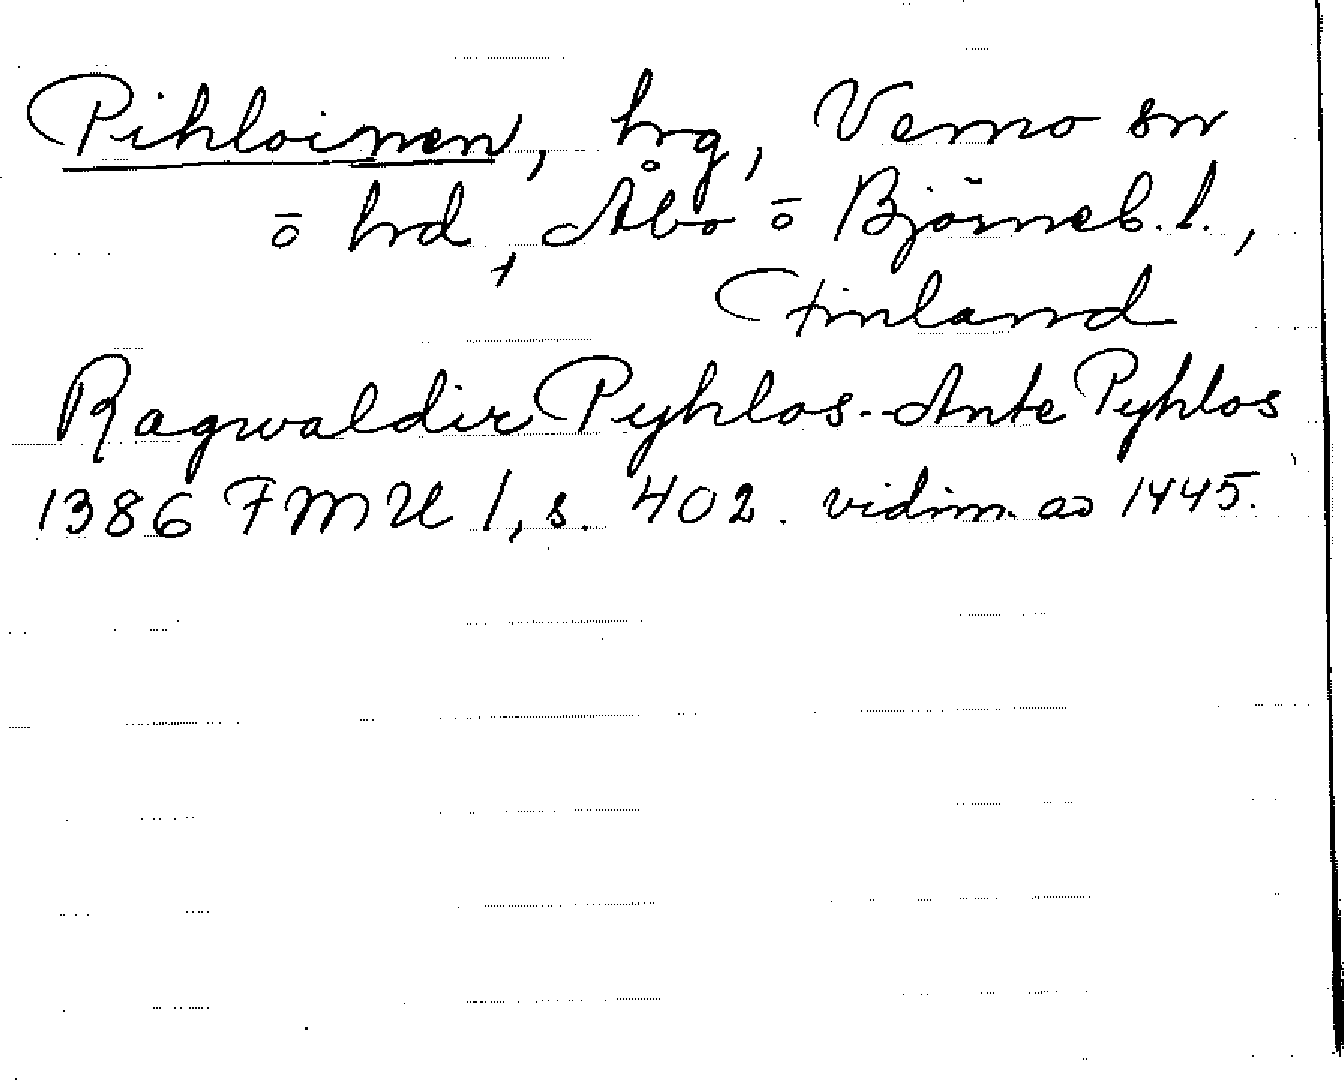 Pihloinen, hrg, Vemo sn
ō hrd, Åbo ō Björneb. l.,
Finland
Ragwaldir Pyhlos-Ante Pyhlos
1386 FMU 1, s. 402. vidim. av 1445.